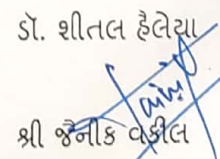 ડૉ. શીતલ હૈલેયા
શ્રી જૈનીક વકીલ